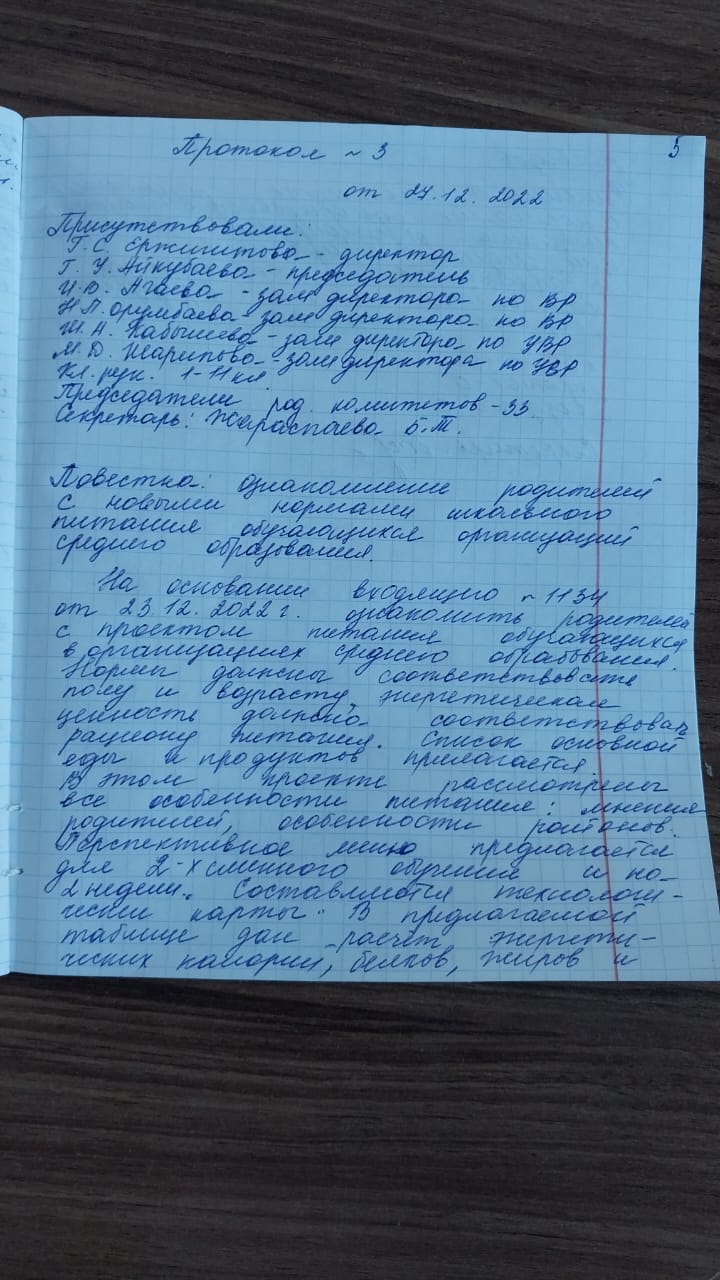 5
Протокол ~ 3
от 27.12.2022
Присутствовали:
Г. С. Ержигитова - директор
Г. У. Айкубаева - председатель
Агаева - зам директора по ВР
Н П. Орумбаева зам директора по ВР
Ш. А. Кабышева - зам директора по УВР
М. Д. Шарипова - зам директора по УВР
Кл. рук. 1-11 кл
Председатели род. комитетов - 33.
Секретарь: Жараспаева Б. Т.
Повестка: ознакомление родителей
с новыми нормами школьного
питания обучающихся организаций
среднего образования.
На основании входящего ~ 1134
от 23.12.2022 г. ознакомить родителей
с проектом питания обучающихся
в организациях среднего образования.
Нормы должны соответствовать
полу и возрасту, энергетическая
ценность должна соответствовать
рациону питания. Список основной
еды и продуктов прилагается.
В этом проекте рассмотрены
все особенности питания: мнения
родителей, особенности районов.
Перспективное меню предлагается
для 2-х сменного обучения и на
2 недели. Составляются технологи-
ческие карты. В предлагаемой
таблице дан расчёт энергети-
ческих калории, белков, жиров и